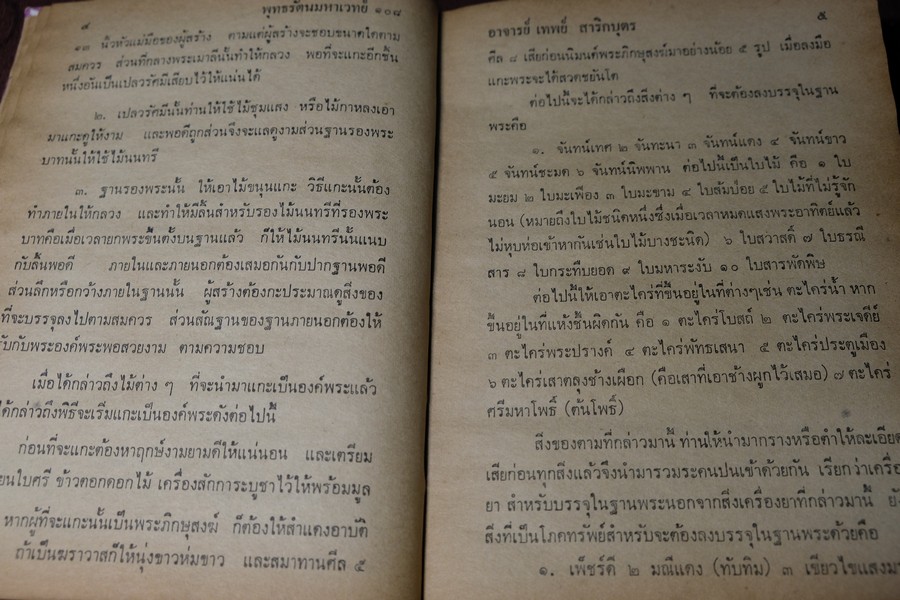 พุทธรัตนมหาเวทย์ ๑๐๘
๔
๑๓ นิ้วหัวแม่มือของผู้สร้าง ตามแต่ผู้สร้างจะชอบขนาดใดตาม
สมควร ส่วนที่กลางพระเมาลีนั้นทำให้กลวง พอที่จะแกะอีกชิ้น
หนึ่งอันเป็นเปลวรัศมีเสียบไว้ให้แน่นได้
๒. เปลวรัศมีนั้นท่านให้ใช้ไม้ชุมแสง หรือไม้กาหลงเอา
มาแกะดูให้งาม และพอดีถูกส่วนจึงจะแลดูงามส่วนฐานรองพระ
บาทนั้นให้ใช้ไม้นนทรี
๓. ฐานรองพระนั้น ให้เอาไม้ขนุนแกะ วิธีแกะนั้นต้อง
ทำภายในให้กลวง และทำให้มีลิ้นสำหรับรองไม้นนทรีที่รองพระ
บาทคือเมื่อเวลายกพระขึ้นตั้งบนฐานแล้ว ก็ให้ไม้นนทรีนั้นแนบ
กับลิ้นพอดี ภายในและภายนอกต้องเสมอกันกับปากฐานพอดี
ส่วนลึกหรือกว้างภายในฐานนั้น ผู้สร้างต้องกะประมาณดูสิ่งของ
ที่จะบรรจุลงไปตามสมควร ส่วนสัณฐานของฐานภายนอกต้องให้
รับกับพระองค์พระพอสวยงาม ตามความชอบ
เมื่อได้กล่าวถึงไม้ต่าง ๆ ที่จะนำมาแกะเป็นองค์พระแล้ว
ได้กล่าวถึงพิธีจะเริ่มแกะเป็นองค์พระดังต่อไปนี้
ก่อนที่จะแกะต้องหาฤกษ์งามยามดีให้แน่นอน และเตรียม
ยนใบศรี ข้าวตอกดอกไม้ เครื่องสักการะบูชาไว้ให้พร้อมมูล
หากผู้ที่จะแกะนั้นเป็นพระภิกษุสงฆ์ ก็ต้องให้สำแดงอาบัติ
ถ้าเป็นฆราวาสก็ให้นุ่งขาวห่มขาว และสมาทานศีล ๕
อาจารย์ เทพย์ สาริกบุตร
๕
ศีล ๘ เสียก่อนนิมนต์พระภิกษุสงฆ์มาอย่างน้อย ๕ รูป เมื่อลงมือ
แกะพระจะได้สวดชยันโต
ต่อไปนี้จะได้กล่าวถึงสิ่งต่าง ๆ ที่จะต้องลงบรรจุในฐาน
พระคือ
๑. จันทน์เทศ ๒ จันทะนา ๓ จันทน์แดง ๔ จันทน์ขาว
๕ จันทน์ชะมด ๖ จันทน์นิพพาน ต่อไปนี้เป็นใบไม้ คือ ๑ ใบ
มะยม ๒ ใบมะเฟือง ๓ ใบมะขาม ๔ ใบส้มป่อย ๕ ใบไม้ที่ไม่รู้จัก
นอน (หมายถึงใบไม้ชนิดหนึ่งซึ่งเมื่อเวลาหมดแสงพระอาทิตย์แล้ว
ไม่หุบห่อเข้าหากันเช่นใบไม้บางชะนิด) ๖ ใบสวาสดิ์ ๗ ใบธรณี
สาร ๘ ใบกระทืบยอด ๙ ใบมหาระงับ ๑๐ ใบสารพัดพิษ
ต่อไปนี้ให้เอาตะไคร่ที่ขึ้นอยู่ในที่ต่างๆเช่น ตะไคร่น้ำ หาก
ขึ้นอยู่ในที่แห้งชื้นผิดกัน คือ ๑ ตะไคร่โบสถ์ ๒ ตะไคร่พระเจดีย์
๓ ตะไคร่พระปรางค์ ๔ ตะไคร่พัทธเสมา ๕ ตะไคร่ประตูเมือง
๖ ตะไคร่เสาตลุงช้างเผือก (คือเสาที่เอาช้างผูกไว้เสมอ) ๗ ตะไคร่
ศรีมหาโพธิ์ (ต้นโพธิ์)
สิ่งของตามที่กล่าวมานี้ ท่านให้นำมากรางหรือตำให้ละเอียด
เสียก่อนทุกสิ่งแล้วจึงนำมารวมระคนปนเข้าด้วยกัน เรียกว่าเครื่อ
ยา สำหรับบรรจุในฐานพระนอกจากสิ่งเครื่องยาที่กล่าวมานี้ ยัง
สิ่งที่เป็นโภคทรัพย์สำหรับจะต้องลงบรรจุในฐานพระด้วยคือ
๑. เพ็ชร์ดี ๒ มณีแดง (ทับทิม) ๓ เขียวใขแสงมร